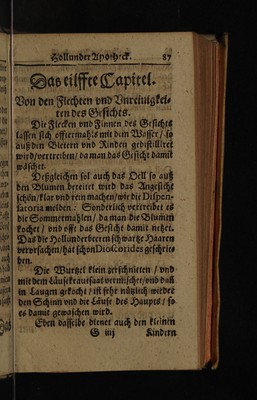 Hollunder Apotheck. 87
Das eilffte Capitel.
Von den Flechten vnd Vnreinigkei-
ten des Gesichts.
Die Flecken vnd Finnen des Gesichts
lassen sich offtermahls mit dem Wasser / so
auß den Bletern vnd Rinden gedistilliret
wird / vertreiben / da man das Gesicht damit
wäschet.
Deßgleichen sol auch das Oell so auß
den Blumen bereitet wird das Angesicht
schön / klar vnd rein machen / wie die Dispen-
satoria melden: Sonderlich vertreibet es
die Sommermahlen / da man die Blumen
kochet / vnd offt das Gesicht damit netzet.
Das die Hollunderbeeren schwartze Haaren
vervrsachen / hat schon Dioscorides geschrie-
ben.
Die Wurtzel klein zerschnitten / vnd
mit dem Läusekrautsaat vermischet / vnd daß
in Laugen gekocht / ist sehr nützlich wieder
den Schinn vnd die Läuse des Haupts / so
es damit gewaschen wird.
Eben dasselbe dienet auch den kleinen
G iiij Kindern